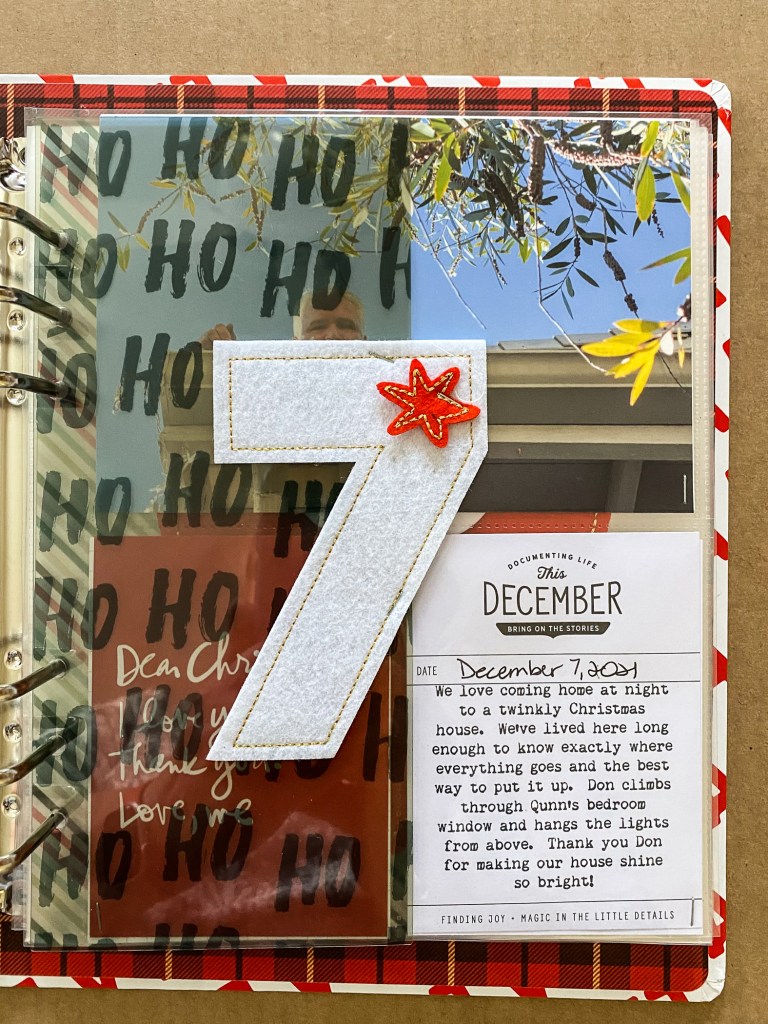 HO HO HO H
HO HO HO H
HO HO
HO HO HO
HO HO
HO HO H
HO HO HO
7
Dear Chri
I love y
thank you
Love, me
DOCUMENTING LIFE
This
DECEMBER
BRING ON THE STORIES
DATE December 7, 2021
We love coming home at night
to a twinkly Christmas
house. We've lived here long
enough to know exactly where
everything goes and the best
way to put it up. Don climbs
through Qunn's bedroom
window and hangs the lights
from above. Thank you Don
for making our house shine
so bright!
FINDING JOY • MAGIC IN THE LITTLE DETAILS